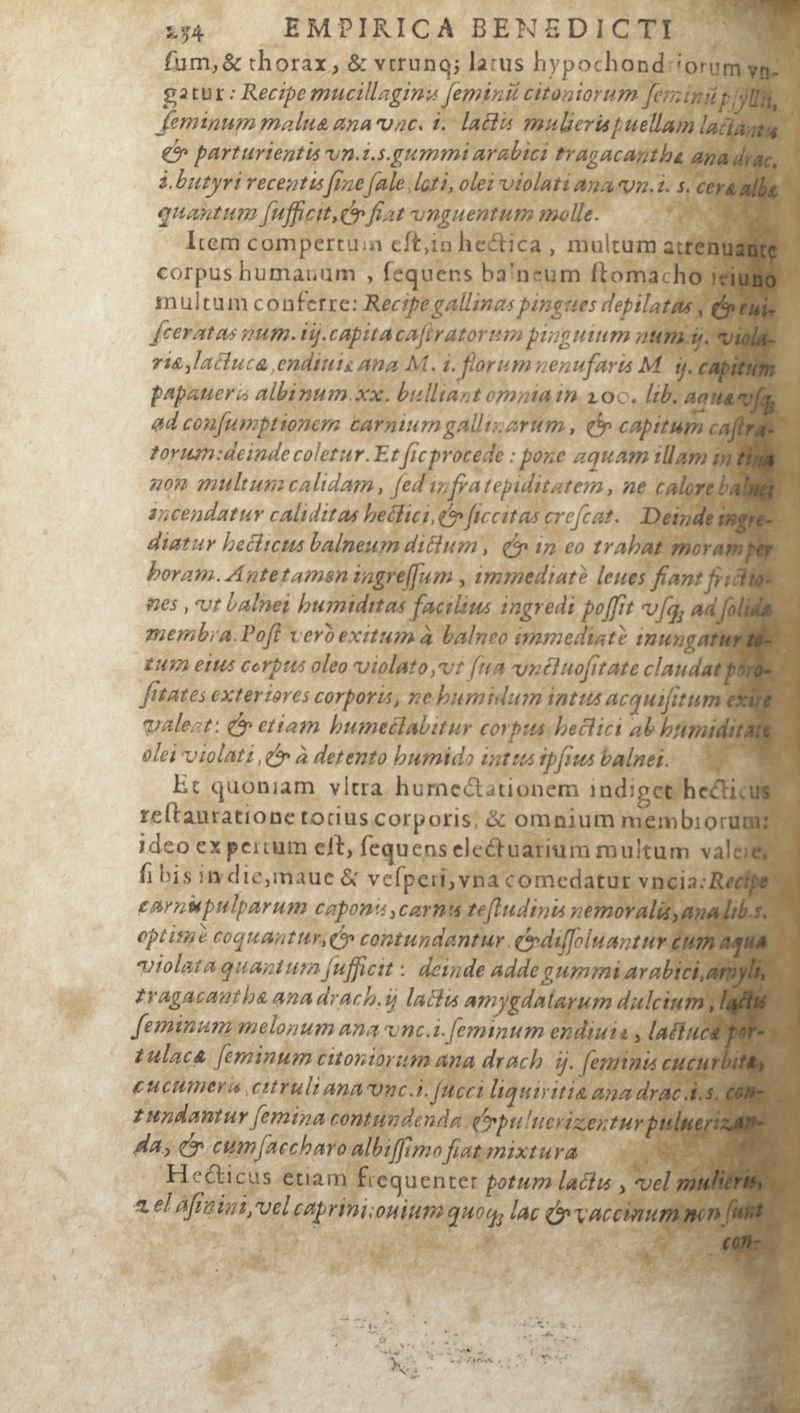 254 EMPIRICA BENEDICTI
sum, & thorax, & vtrunq; latus hypochondriorum vn-
gatur: Recipe mucillaginis seminũ citoniorum seminũ psyllii,
seminum maluæ ana vnc. i. lactis mulieris puellam lactantis
& parturientis vn.i.s. gummi arabici tragacanthæ ana drac.
i. butyri recentis sine sale loti, olei violati ana vn. i. s. ceræ albæ
quantum sufficit, & fiat vnguentum molle.
Item compertum est, in hectica, multum attenuante
corpus humanum, sequens balneum stomacho ieiuno
multum conferre: Recipe gallinas pingues depilatas, & eui-
sceratas num. iij. capita castratorum pinguium num. ij. viola-
riæ, lactucæ, endiuiæ ana M. i. florum nenufaris M ij. capitum
papaueris albi num. xx. bulliant omnia in 100. lib. aquæ vsq;
ad consumptionem carnium gallinarum, & capitum castra-
torum: deinde coletur. Et sic procede: pone aquam illam in tina
non multum calidam, sed infra tepiditatem, ne calore balnei
incendatur caliditas hectici, & siccitas crescat. Deinde ingre-
diatur hecticus balneum dictum, & in eo trahat moram per
horam. Ante tamen ingressum, immediatè leues fiant frictio-
nes, vt balnei humiditas facilius ingredi possit vsq; ad solida
membra. Post verò exitum à balneo immediatè inungatur to-
tum eius corpus oleo violato, vt sua vnctuositate claudat poro-
sitates exteriores corporis, ne humidum intus acquisitum exire
valeat: & etiam humectabitur corpus hectici ab humiditate
olei violati, & à detento humido intus ipsius balnei.
Et quoniam vltra humectationem indiget hecticus
restauratione totius corporis, & omnium membrorum:
ideo expertum est, sequens electuarium multum valere,
si bis in die, mane & vesperi, vna comedatur vncia: Recipe
carniũ pulparum caponis, carnis testudinis nemoralis, ana lib.s.
optimè coquantur, & contundantur. & dissoluantur cum aqua
violata quantum sufficit: deinde adde gummi arabici, amyli,
tragacanthæ ana drach. ij lactis amygdalarum dulcium, lactis
seminum melonum ana vnc. i. seminum endiuiæ, lactucæ por-
tulacæ seminum citoniorum ana drach ij. seminis cucurbitæ,
cucumeris, citruli ana vnc. i. succi liquiritiæ ana drac .i.s. con-
tundantur semina contundenda & puluerizentur puluerizan-
da, & cum saccharo albissimo fiat mixtura
Hecticus etiam frequenter potum lactis, vel mulieris,
vel asinini, vel caprini: ouium quoq; lac & vaccinum non sunt
con-